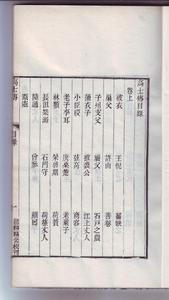 高士傳目錄
卷上
被衣 王倪 齧缺
巢父 許由 善卷
子州支父 壤父 石戶之農
蒲衣子 披裘公 江上丈人
小臣稷 弦高 商容
老子李耳 庚桑楚 老萊子
林類 榮啟期 荷蕢
長沮桀溺 石門守 荷蓧丈人
陸通 曾參 顏回
原憲
高士傳 目錄 龍谿精舍校刊